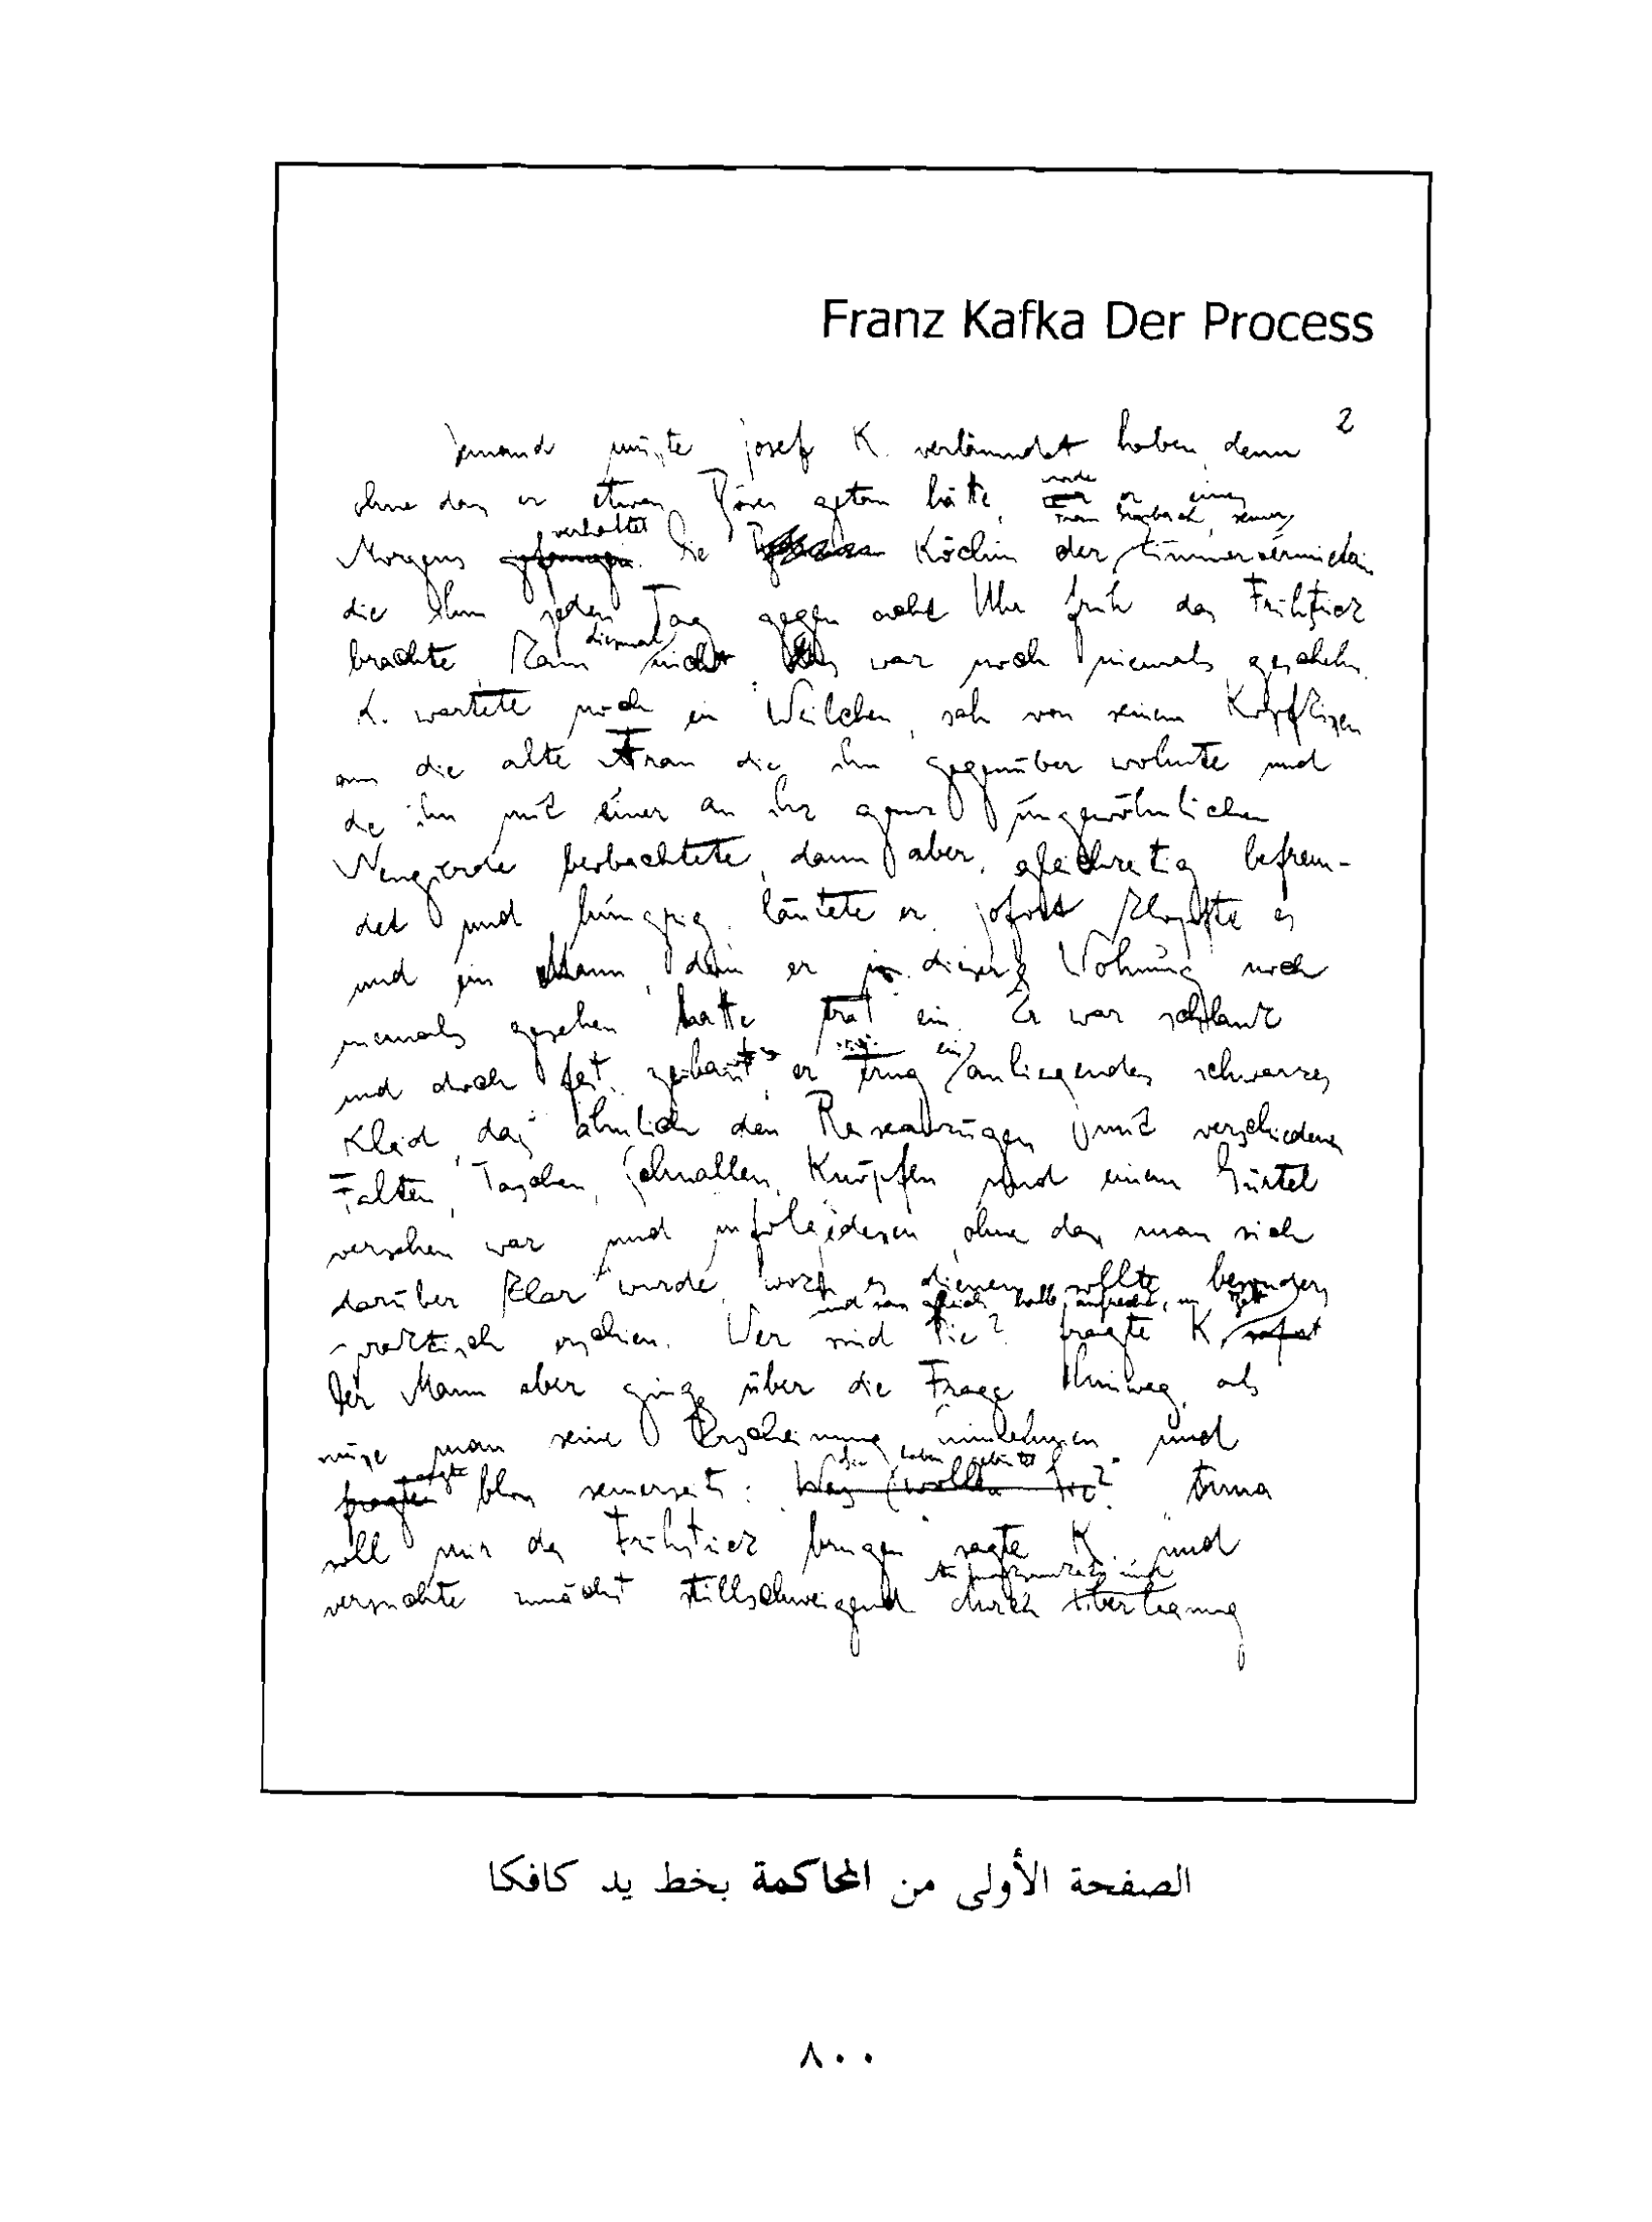 Franz Kafka Der Process
2
Jemand musste Josef K. verläumdet haben, denn
ohne dass er etwas Böses getan hätte, wurde er eines
Frau Grubach, seiner
verhaftet
Morgens gefangen. Die Köchin der Zimmervermieterin
die ihm jeden Tag gegen acht Uhr früh das Frühstück
diesmal
brachte kam nicht. Das war noch niemals geschehn.
K. wartete noch ein Weilchen, sah von seinem Kopfkissen
aus die alte Frau die ihm gegenüber wohnte und
die ihn mit einer an ihr ganz ungewöhnlichen
Neugierde beobachtete, dann aber, gleichzeitig befrem-
det und hungrig, läutete er. Sofort klopfte es
und ein Mann, den er in dieser Wohnung noch
niemals gesehen hatte trat ein. Er war schlank
und doch fest gebaut, er trug ein anliegendes schwarzes
Kleid, das ähnlich den Reiseanzügen mit verschiedenen
Falten, Taschen, Schnallen, Knöpfen und einem Gürtel
versehen war und infolgedessen, ohne dass man sich
darüber klar wurde, wozu es dienen sollte, besonders
und sass gleich halb aufrecht im Bett
praktisch erschien. Wer sind Sie? fragte K. sofort
Der Mann aber ging über die Frage hinweg, als
müsse man seine Erscheinung hinnehmen und
sagte
Sie haben geläutet
fragte bloss seinerseits: Was wollen Sie? Anna
soll mir das Frühstück bringen sagte K. und
Aufmerksamkeit und
versuchte zunächst stillschweigend durch Überlegung
الصفحة الأولى من المحاكمة بخط يد كافكا
٨٠٠